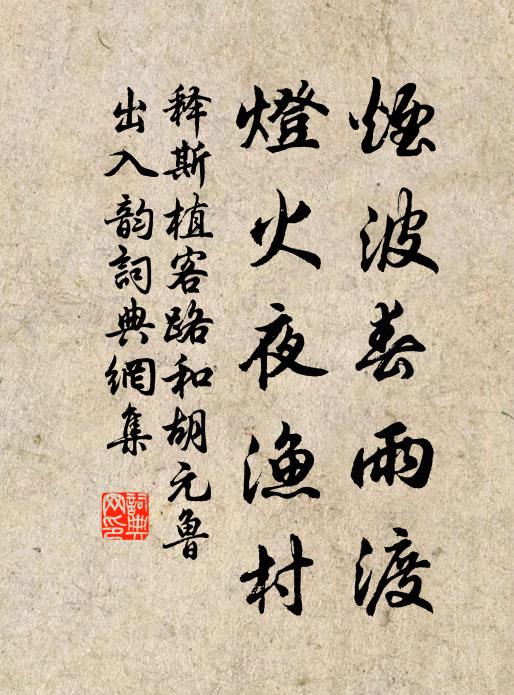 煙波春雨渡
燈火夜漁村
释斯植客路和胡元魯
出入韵詞典網集
詞典網印